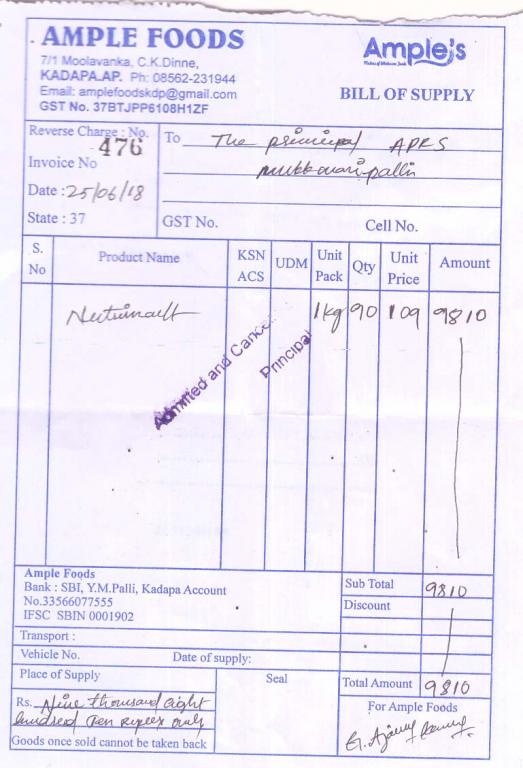 AMPLE FOODS
7/1 Moolavanka, C.K.Dinne,
KADAPA.AP. Ph: 08562-231944
Email: amplefoodskdp@gmail.com
GST No. 37BTJPP6108H1ZF
Ample's
BILL OF SUPPLY
Reverse Charge : No.
476
Invoice No
Date : 25/06/18
State : 37
To The principal APRS
GST No. Cell No.
S. No Product Name KSN ACS UDM Unit Pack Qty Unit Price Amount
Nutrimalt 1kg 90 109 9810
Admitted and Cance
Principal
Ample Foods
Bank : SBI, Y.M.Palli, Kadapa Account
No.33566077555
IFSC SBIN 0001902
Sub Total 9810
Discount
Transport :
Vehicle No. Date of supply:
Place of Supply Seal Total Amount 9810
Rs. Nine thousand eight
hundred Ten rupees only
For Ample Foods
Goods once sold cannot be taken back